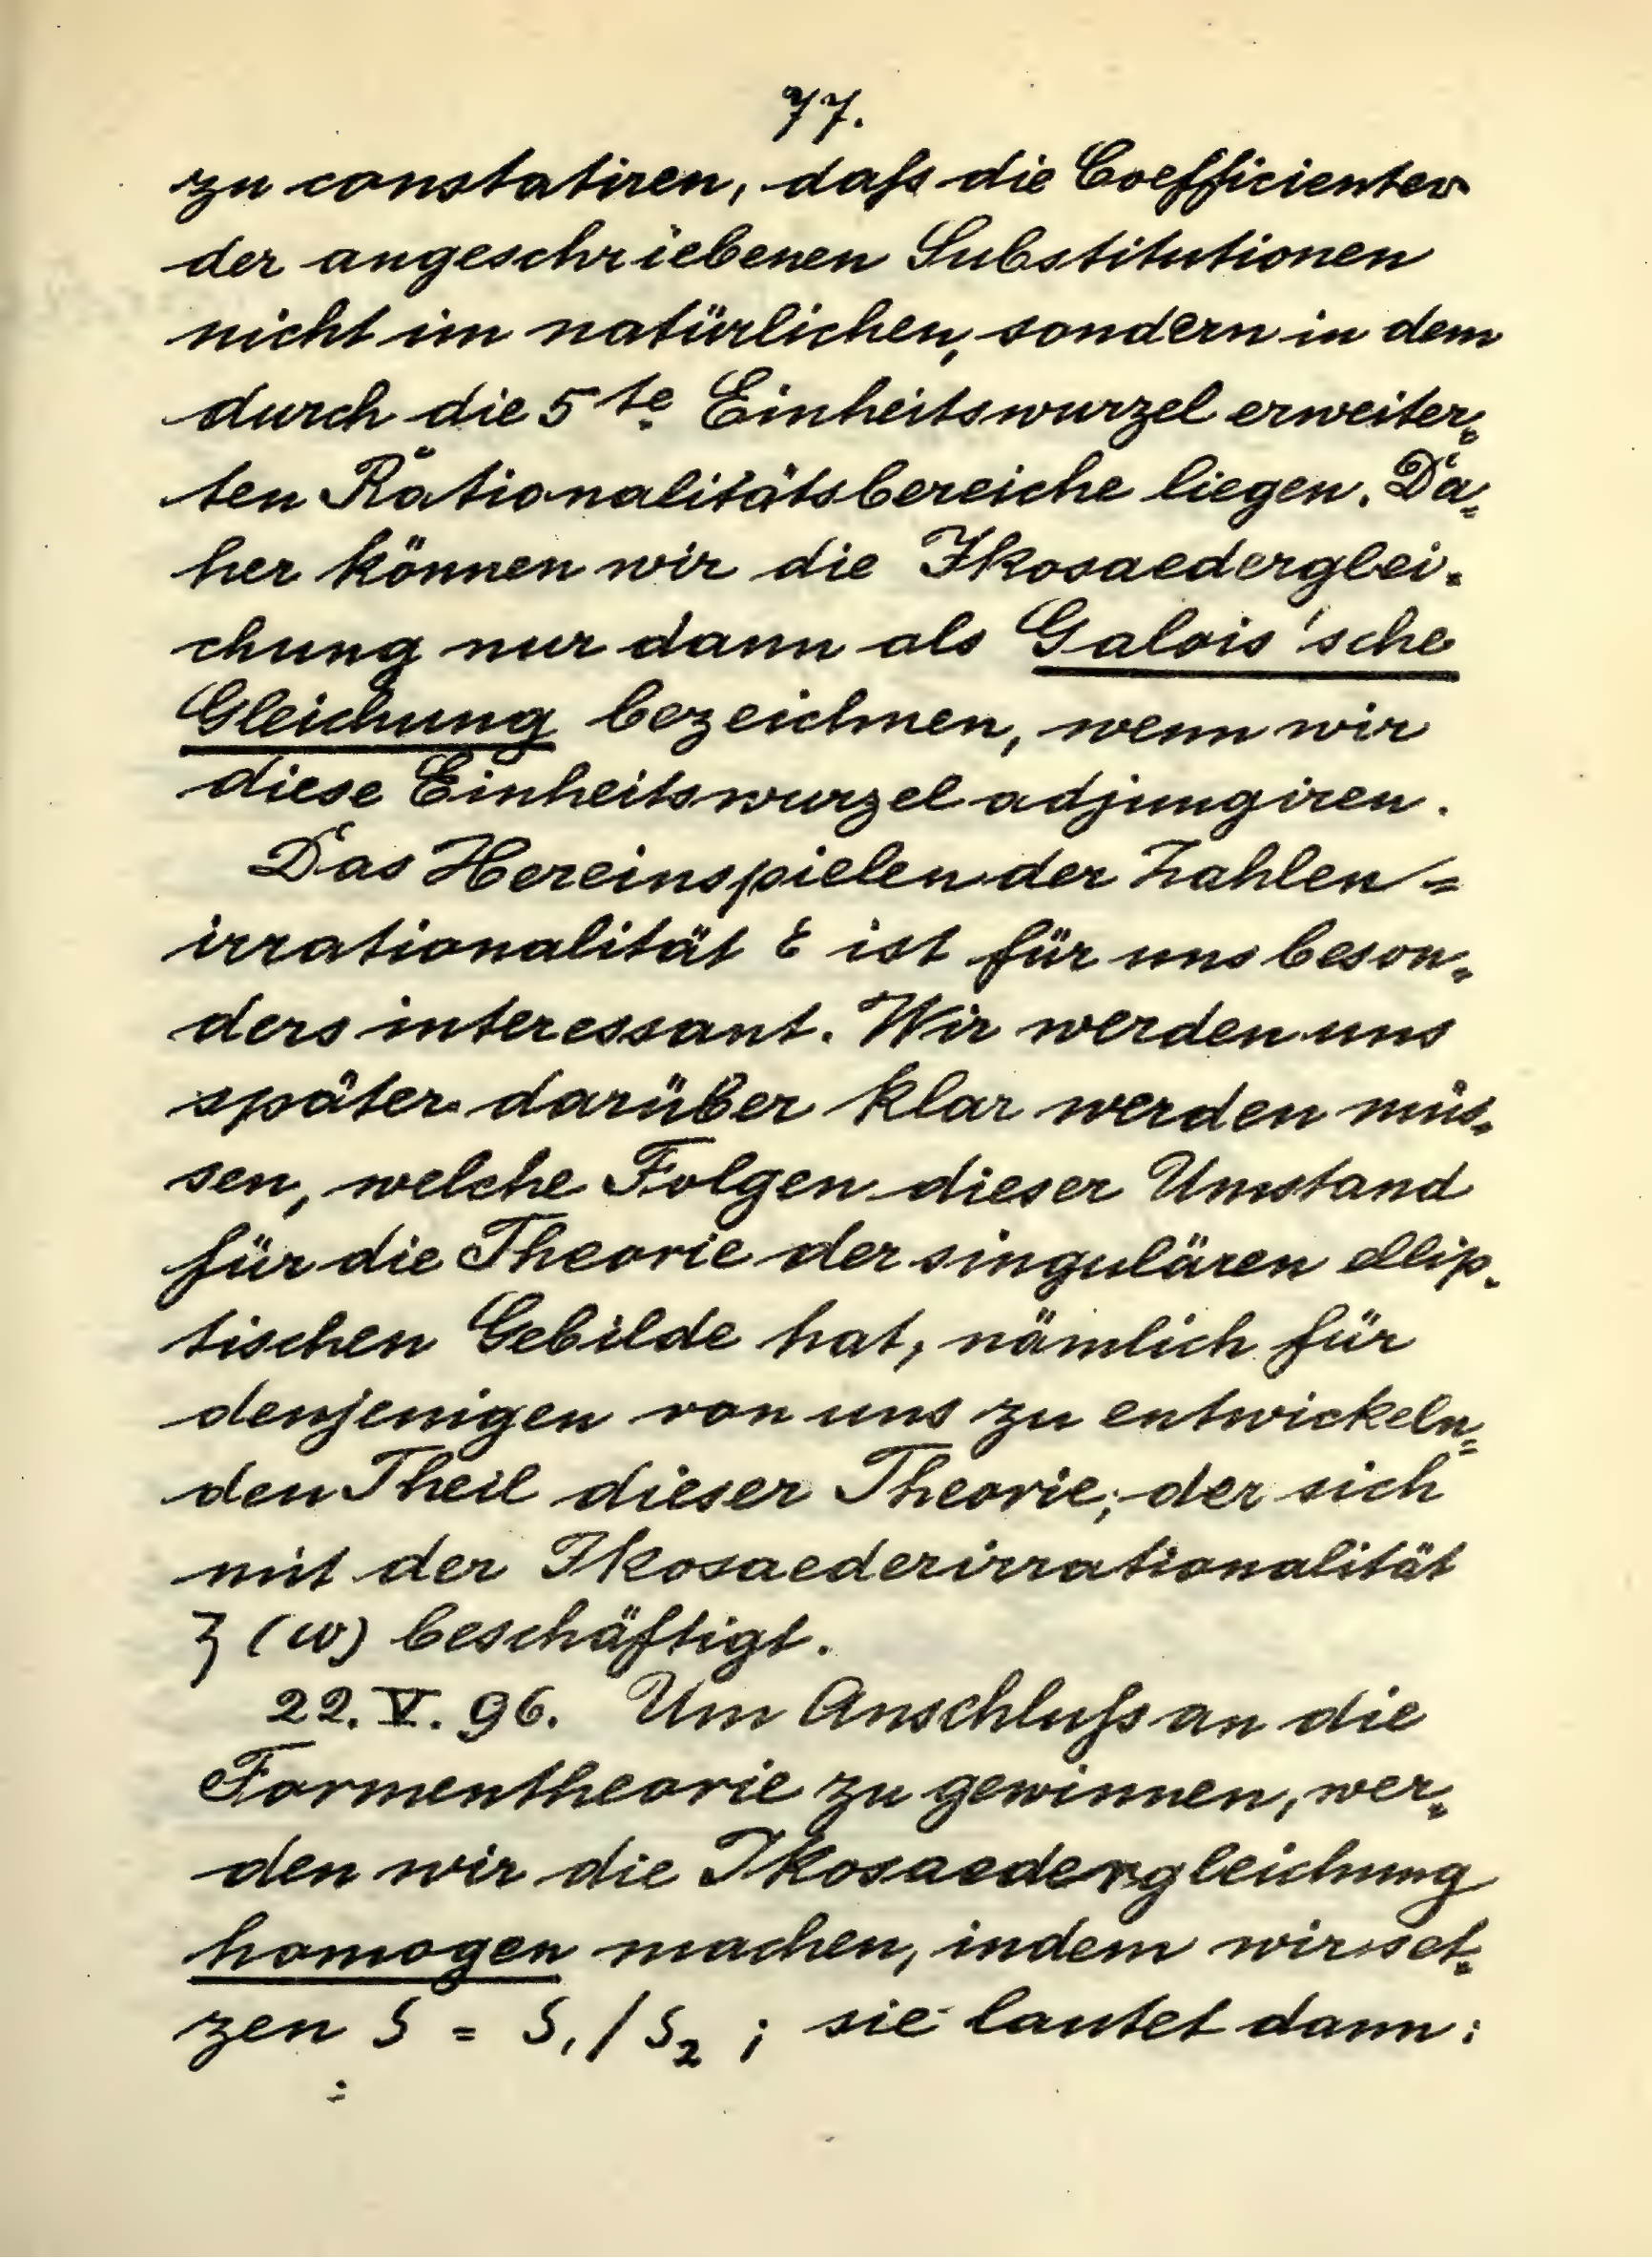 77.
zu constatiren, daß die Coefficienten
der angeschriebenen Substitutionen
nicht im natürlichen, sondern in dem
durch die 5te Einheitswurzel erweiter=
ten Rationalitätsbereiche liegen. Da=
her können wir die Ikosaederglei=
chung nur dann als Galois'sche
Gleichung bezeichnen, wenn wir
diese Einheitswurzel adjungiren.
Das Hereinspielen der Zahlen=
irrationalität ε ist für uns beson=
ders interessant. Wir werden uns
später darüber klar werden müs=
sen, welche Folgen dieser Umstand
für die Theorie der singulären ellip=
tischen Gebilde hat, nämlich für
denjenigen von uns zu entwickeln=
den Theil dieser Theorie, der sich
mit der Ikosaederirrationalität
ζ (ω) beschäftigt.
22. V. 96. Um Anschluß an die
Formentheorie zu gewinnen, wer=
den wir die Ikosaedergleichung
homogen machen, indem wir set=
zen ζ = ζ₁/ζ₂ ; sie lautet dann: